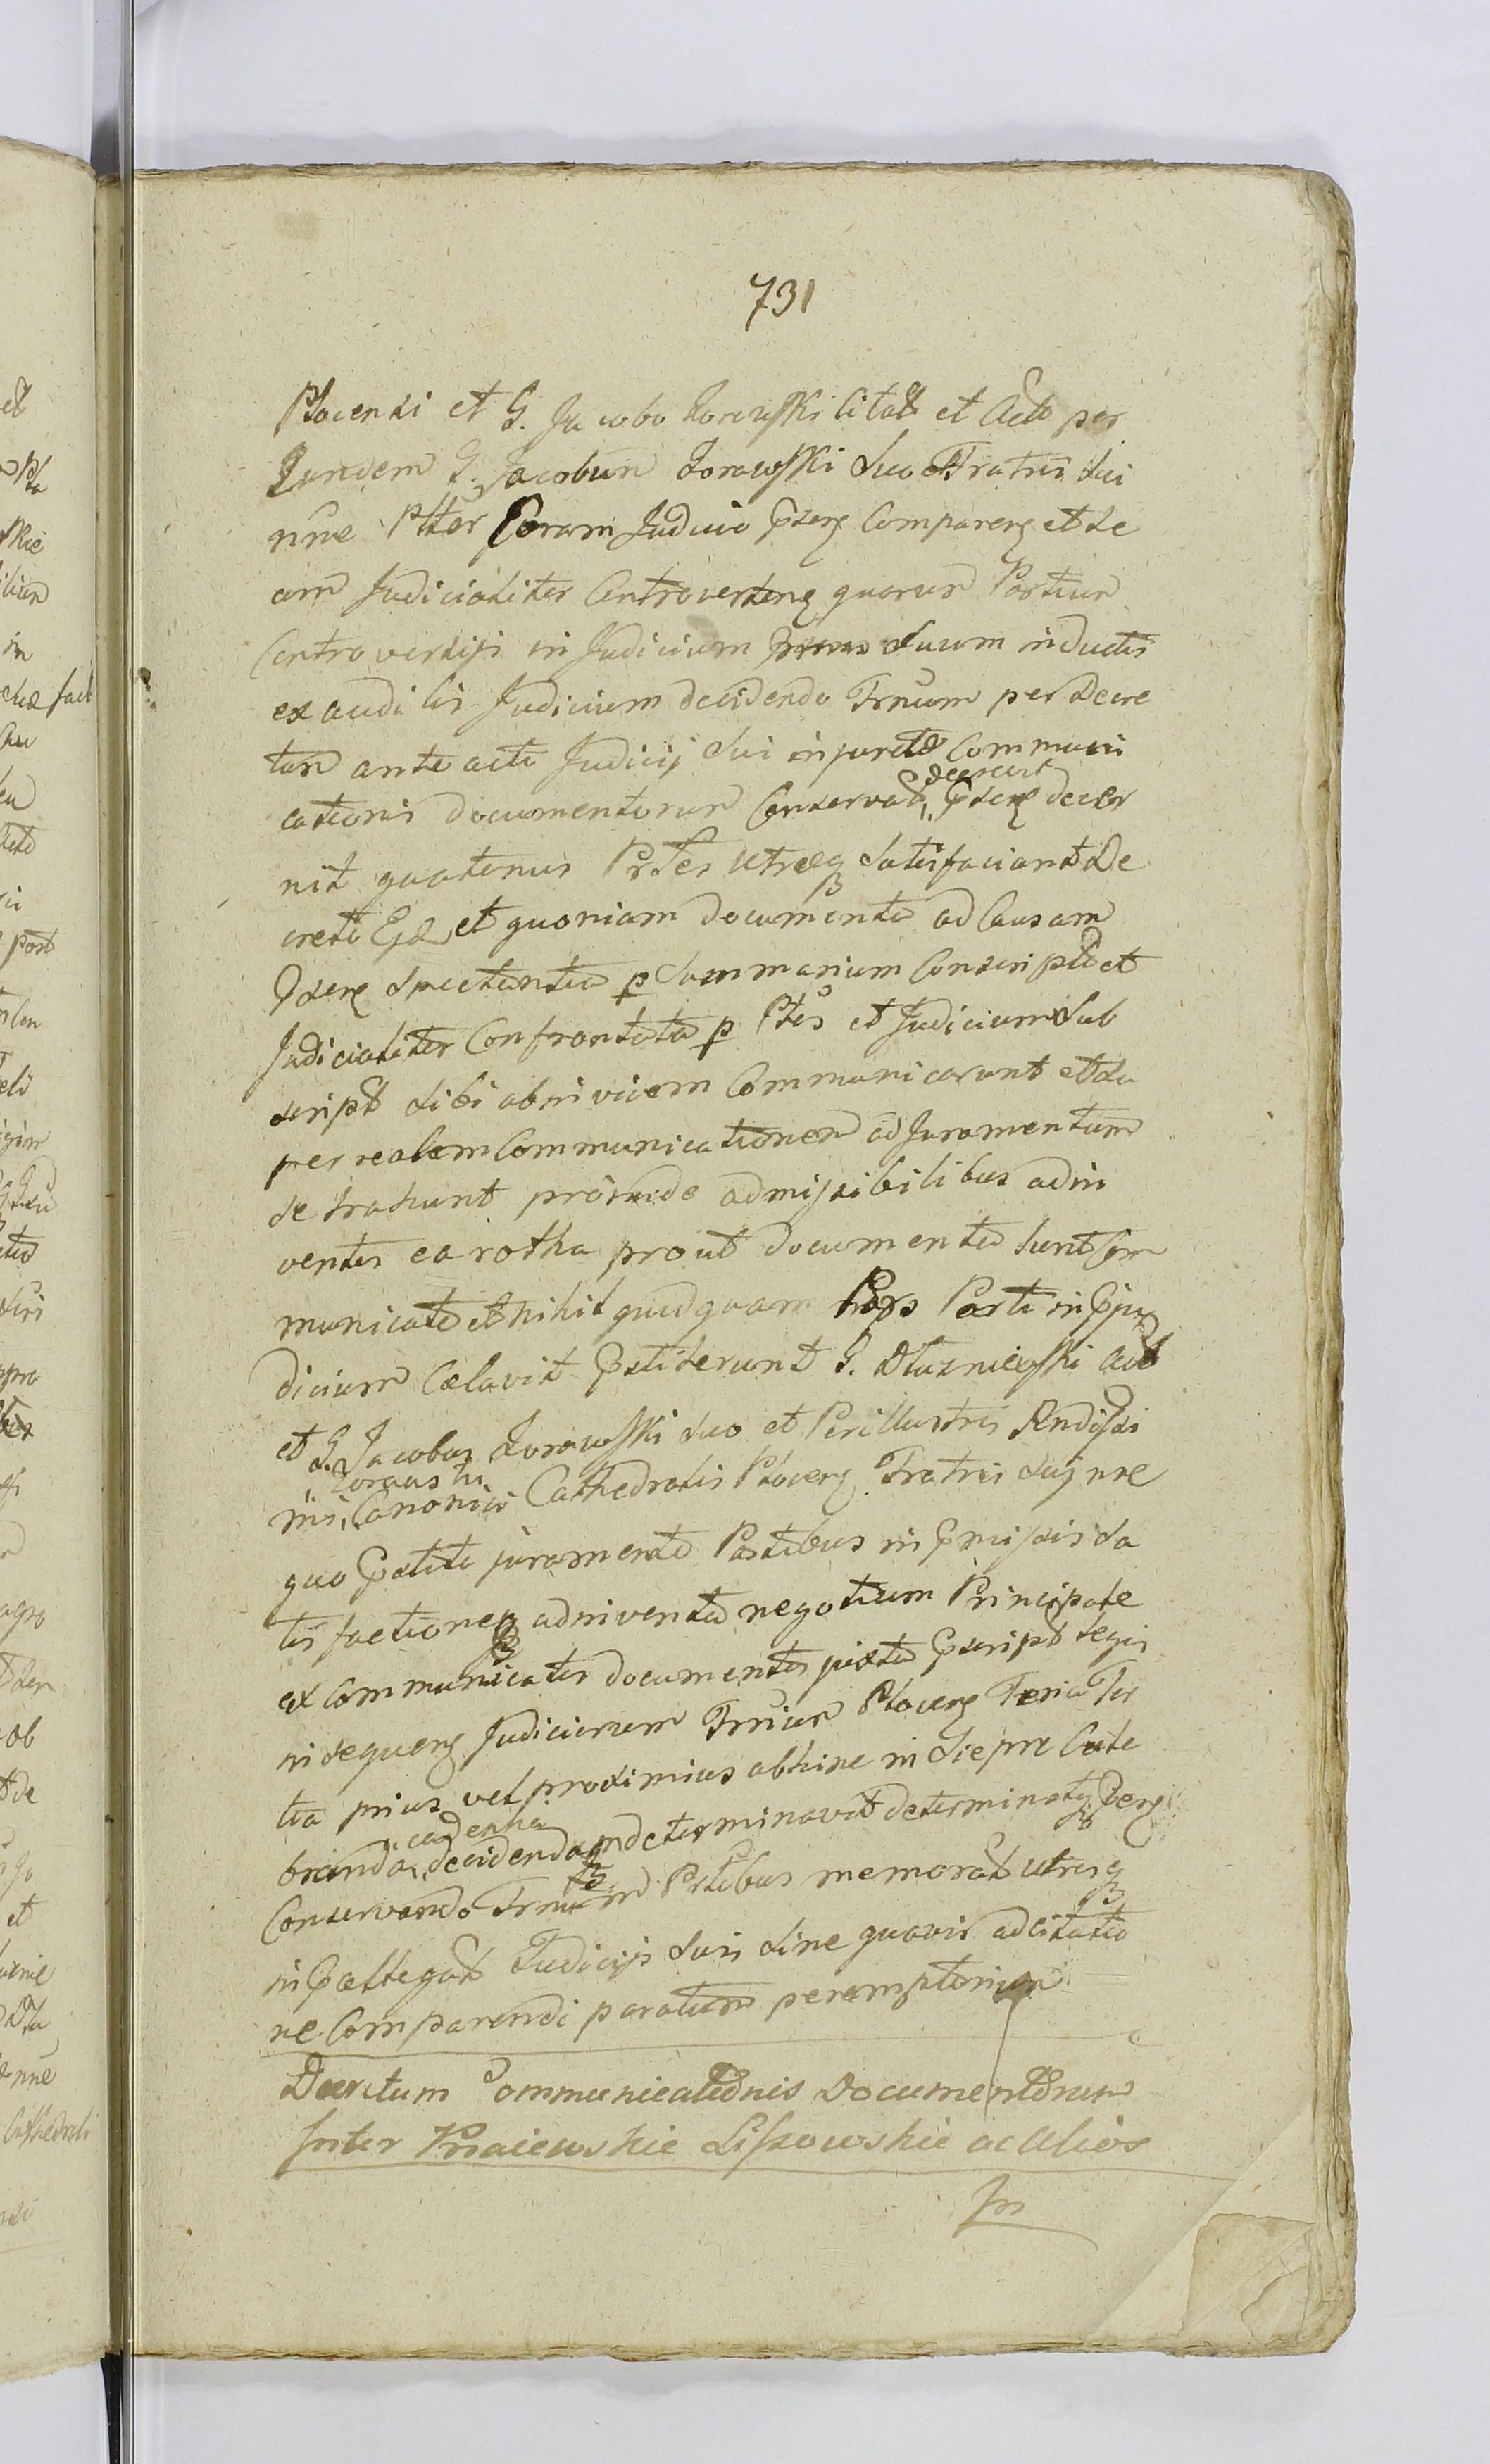 731
Plocensi et G. Jacobo Zorawski Citat et Acto per
Eundem G. Jacobum Zorawski suo et Fratris sui
nne Ptter Coram Judicio Pnserg Compareng et se
cum Judicialiter Controverteng quarum Partium
Controversiis in Judicium suum inductis
exauditis Judicium decidendo Trnum per Decre
tum ante acti Judicij sui injuncto Communi
cationis documentorum Conservat decrevit
nit quatenus Prtes utraeq satisfaciant De
creto et quoniam documenta ad Causam
spectantia p Summarium Conscripta et
Judicialiter Confrontata p Ptes et Judicium sub
script sibi abinvicem Communicarunt et su
per realem Communicationem ad Juramentum
se trahunt proinde admissibilibus adin
ventis ea rotha prout documenta sunt Com
municata et nihil quidquam Pars Parti in Pju
dicium Celavit Pstiterunt G. Dluzniewski Act
et G. Jacobus Zorawski suo et Perillustris Rndissi
mi Zorawski Canonici Cathedralis Ploceng Fratris sui nne
quo Pstito juramento Partibus in Pmissis sa
tisfactioneq adinventa negotium Principale
ex Communicatis documentis juxta Pscript legis
in sequeng Judiciorum Trrium Ploceng Feria Ter
tia prius vel proximius abhinc in Siepre Cele
branda cadentia decidendam determinavit determinatq
Conservando Trnum Prtibus memorat utrisq
in Pallegat Judicijs suis sine quavis adcitatio
ne Comparendi paratum peremptorium
Decretum Communicationis Documentorum
Inter Kraiewskie Lissowskie ac Alios
In